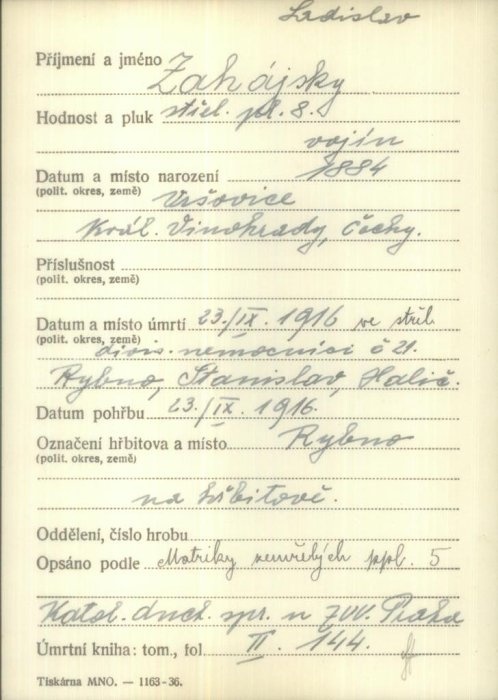 Ladislav
Příjmení a jméno Zahájsky
Hodnost a pluk střel. pl. 8.
vojín
Datum a místo narození 1884
(polit. okres, země) Vršovice
Král. Vinohrady, Čechy.
Příslušnost
(polit. okres, země)
Datum a místo úmrtí 23./IX. 1916 ve střel.
(polit. okres, země) divis. nemocnici č 21.
Rybno, Stanislav, Halič.
Datum pohřbu 23./IX. 1916.
Označení hřbitova a místo Rybno
(polit. okres, země)
na hřbitově.
Oddělení, číslo hrobu
Opsáno podle Matriky zemřelých ppl. 5
Katol. duch. spr. u ZVV. Praha
Úmrtní kniha: tom., fol. II. 144.
Tiskárna MNO. — 1163-36.